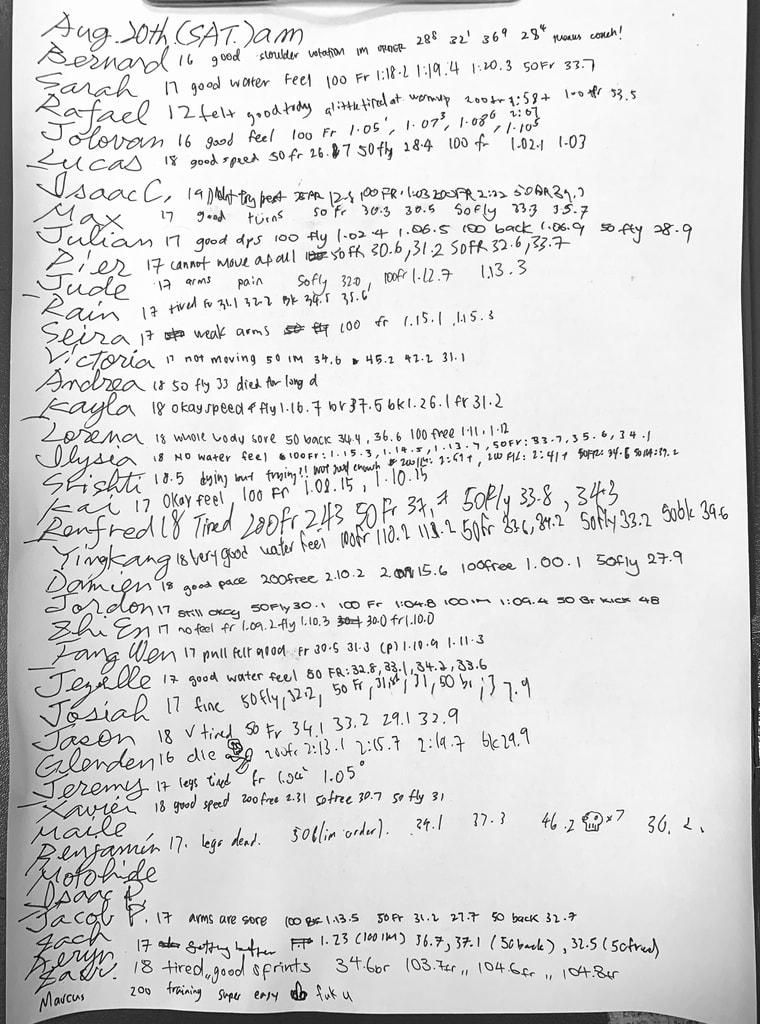 Aug. 20th (SAT.) am
Bernard 16 good shoulder rotation IM ORDER 28⁸ 32¹ 36⁹ 28⁴ coach!
Sarah 17 good water feel 100 Fr 1:18.2 1:19.4 1:20.3 50 Fr 33.7
Rafael 12 felt good today a little tired at warmup 200 fr 2:58+ 2:07 100 fr 53.5
Jolovan 16 good feel 100 Fr 1.05¹, 1.07³, 1.08⁶, 1.10⁵
Lucas 18 good speed 50 fr 26.7 50 fly 28.4 100 fr 1.02.1 1.03
Isaac C. 19 100 FR: 1:03 200 FR 2:22 50 BR 39.7
Max 17 good turns 50 fr 30.3 30.5 50 fly 33.3 35.7
Julian 17 good dps 100 fly 1.02.4 1.06.5 100 back 1.06.9 50 fly 28.9
Pier 17 cannot move at all 50 FR 30.6, 31.2 50 FR 32.6, 33.7
Jude 17 arms pain 50 fly 32.0, 100 fr 1.12.7 1.13.3
Rain 17 tired Fr 31.1 32.2 BK 34.5 35.6
Seira 17 weak arms 100 fr 1.15.1, 1.15.3
Victoria 17 not moving 50 IM 34.6 45.2 42.2 31.1
Andrea 18 50 fly 33 died for long d
Kayla 18 okay speed fly 1.16.7 br 37.5 bk 1.26.1 fr 31.2
Lorena 18 whole body sore 50 back 34.4, 36.6 100 free 1.11, 1.12
Ilysia 18 NO water feel 100 FR: 1.15.3, 1.14.5, 1.13.7, 50 FR: 33.7, 35.6, 34.1
Srishti 18.5 dying but trying!! not good enough 200 IM: 2:59+, 200 FR: 2:41+ 50 FR: 34.6 50 IM: 37.2
Kai 17 Okay feel 100 Fr 1.08.15, 1.10.15
Renfred 18 Tired 200 fr 2.43 50 Fr 37, 50 Fly 33.8, 34.3
Yingkang 18 very good water feel 100 fr 110.2 113.2 50 fr 33.6, 34.2 50 fly 33.2 50 bk 39.6
Damien 18 good pace 200 free 2.10.2 2.15.6 100 free 1.00.1 50 fly 27.9
Jordon 17 still okay 50 Fly 30.1 100 Fr 1:04.8 100 IM 1:09.4 50 Br kick 48
Zhi En 17 no feel fr 1.09.2 fly 1.10.3 30.0 fr 1.10.0
Fang Wen 17 pull felt good Fr 30.5 31.3 (P) 1.10.9 1.11.3
Jezelle 17 good water feel 50 FR: 32.8, 33.1, 34.2, 33.6
Josiah 17 fine 50 fly, 32.2, 50 Fr, 31, 50 br, 37.9
Jason 18 v tired 50 Fr 34.1 33.2 29.1 32.9
Glenden 16 die 200 fr 2:13.1 2:15.7 2:19.7 bk 29.9
Jeremy 17 legs tired fr 1.05⁰
Xavier 18 good speed 200 free 2.31 50 free 30.7 50 fly 31
Maile
Benjamin 17. legs dead. 50 (im order). 34.1 37.3 46.2 ×7 30.2.
Motohide
Isaac B
Jacob P. 17 arms are sore 100 1.13.5 50 Fr 31.2 27.7 50 back 32.7
Zach
Keryn 17 getting better 1.23 (100 IM) 36.7, 37.1 (50 back), 32.5 (50 free)
18 tired,, good sprints 34.6 br 103.7 fr,, 104.6 fr,, 104.8 fr
Marcus 200 training super easy fuk u